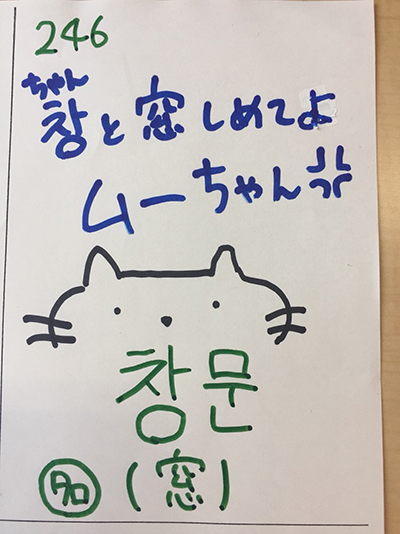 246
ちゃん
창と窓しめてよ
ムーちゃん
창문
名 (窓)